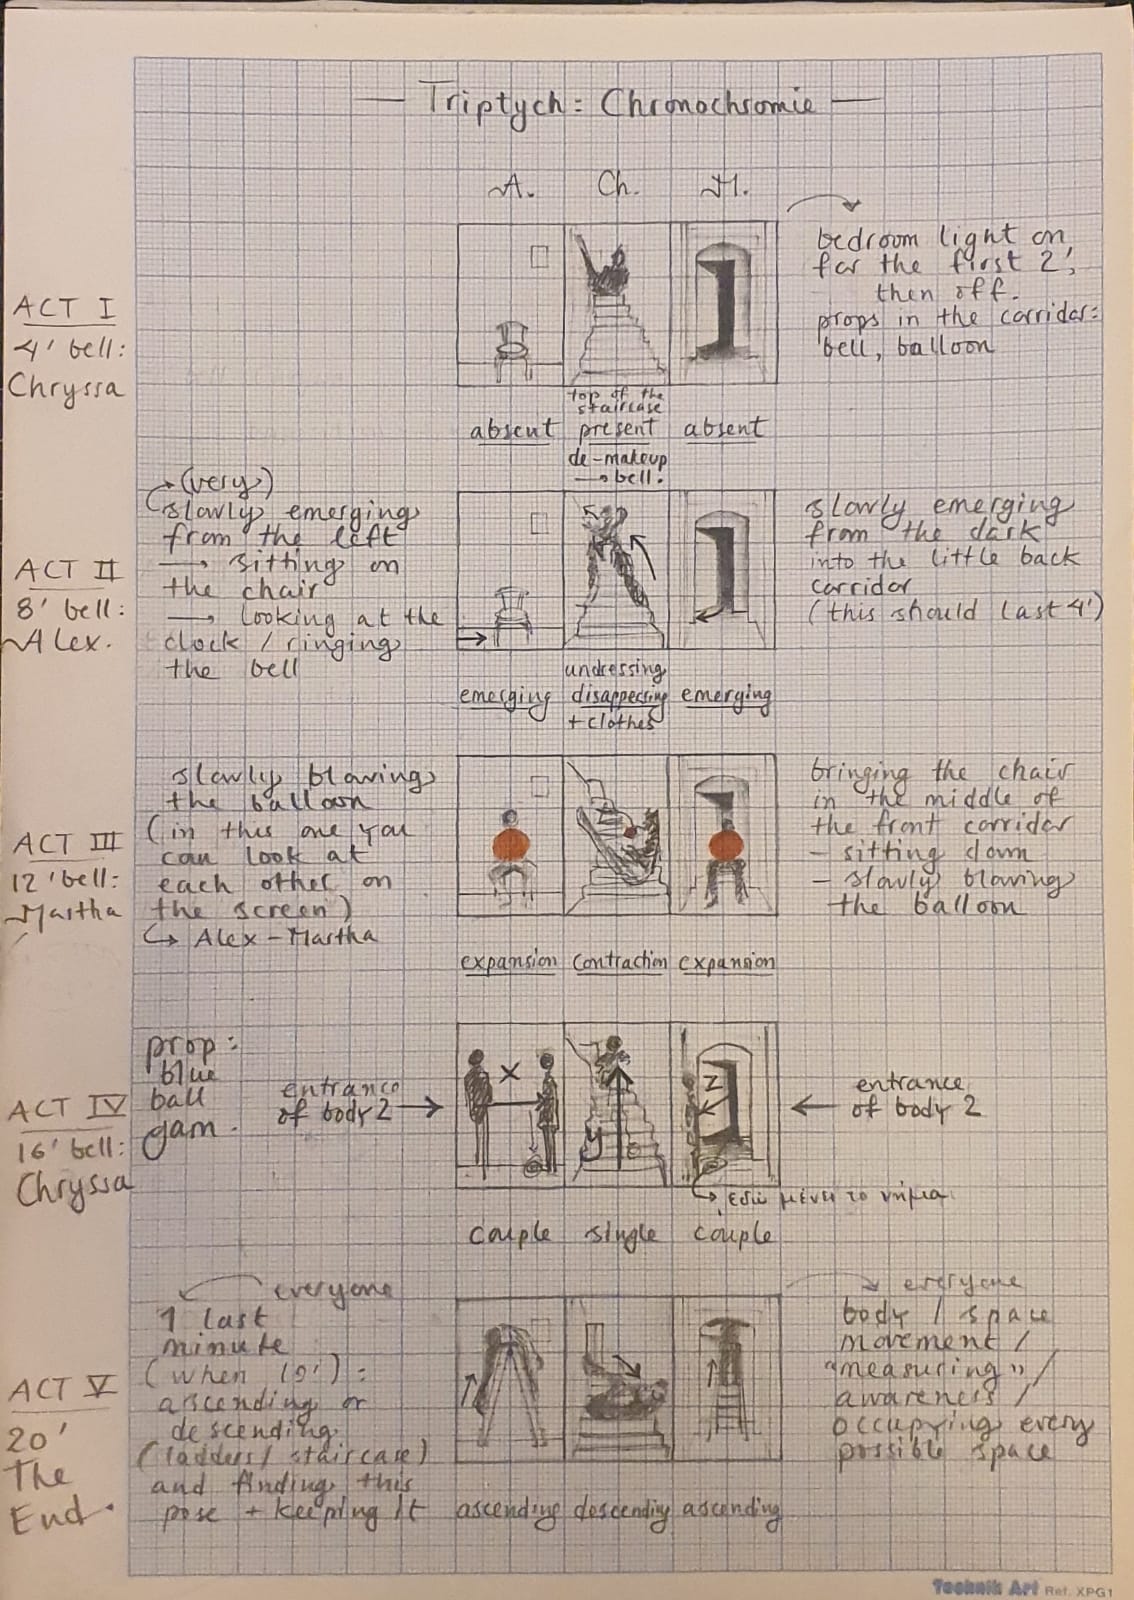 — Triptych: Chronochromie —
A. Ch. M.
ACT I
4' bell:
Chryssa
bedroom light on
for the first 2',
then off.
props in the corridor:
bell, balloon
top of the
staircase
absent present absent
de-makeup
→ bell!
ACT II
8' bell:
Alex.
(very)
slowly emerging
from the left
→ sitting on
the chair
→ looking at the
clock / ringing
the bell
slowly emerging
from the dark
into the little back
corridor
(this should last 4')
undressing
emerging disappearing emerging
+ clothes
ACT III
12' bell:
Martha
slowly blowing
the balloon
(in this one you
can look at
each other on
the screen)
↳ Alex - Martha
bringing the chair
in the middle of
the front corridor
- sitting down
- slowly blowing
the balloon
expansion contraction expansion
ACT IV
16' bell:
Chryssa
prop:
blue
ball
yarn.
entrance
of body 2 →
X
y
Z
← entrance
of body 2
↳ εδώ μένει το νήμα
couple single couple
ACT V
20'
The
End.
everyone
1 last
minute
(when 19'):
ascending or
descending
(ladders / staircase)
and finding this
pose + keeping it
everyone
body / space
movement /
"measuring" /
awareness /
occupying every
possible space
ascending descending ascending
Technik Art Ref. XPG1